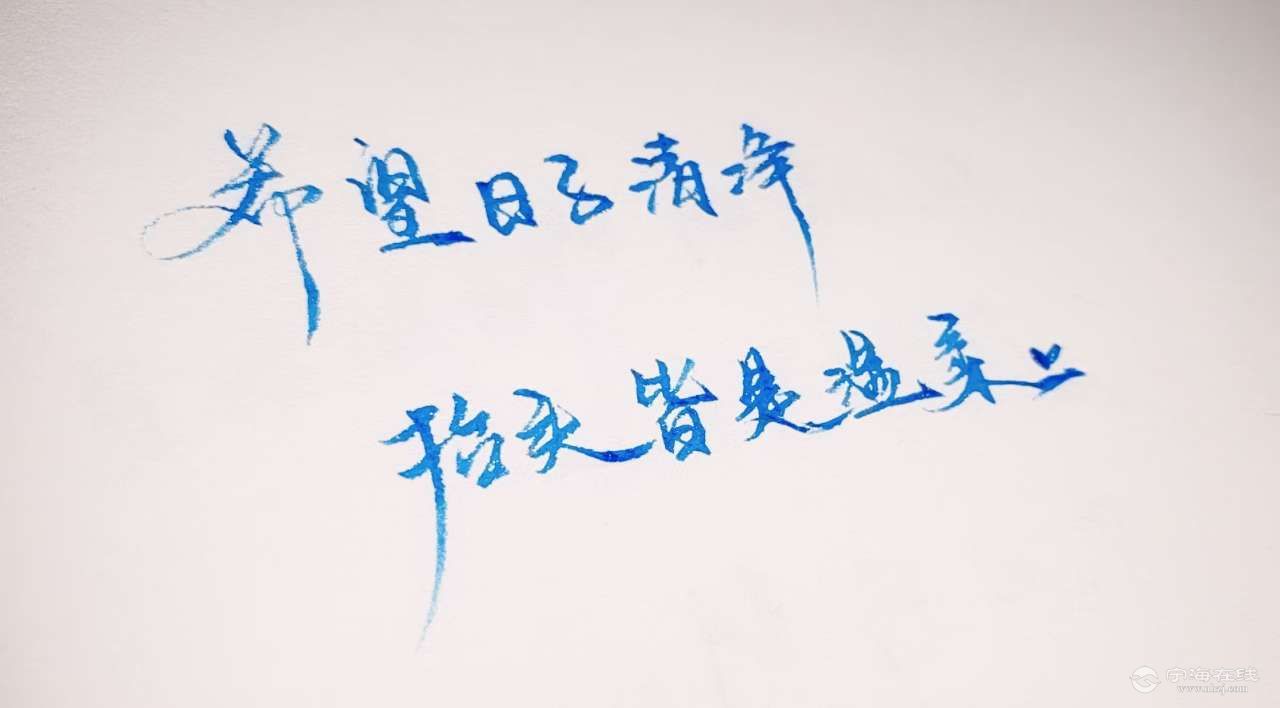 希望日子清净
抬头皆是温柔
宁海在线
www.nhzj.com